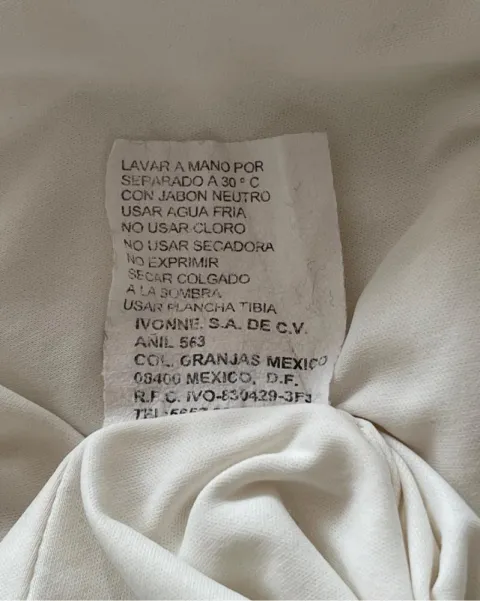 LAVAR A MANO POR
SEPARADO A 30° C
CON JABON NEUTRO
USAR AGUA FRIA
NO USAR CLORO
NO USAR SECADORA
NO EXPRIMIR
SECAR COLGADO
A LA SOMBRA
USAR PLANCHA TIBIA
IVONNE, S.A. DE C.V.
AÑIL 563
COL. GRANJAS MEXICO
08400 MEXICO, D.F.
R.F.C. IVO-830429-3F3
TEL.: